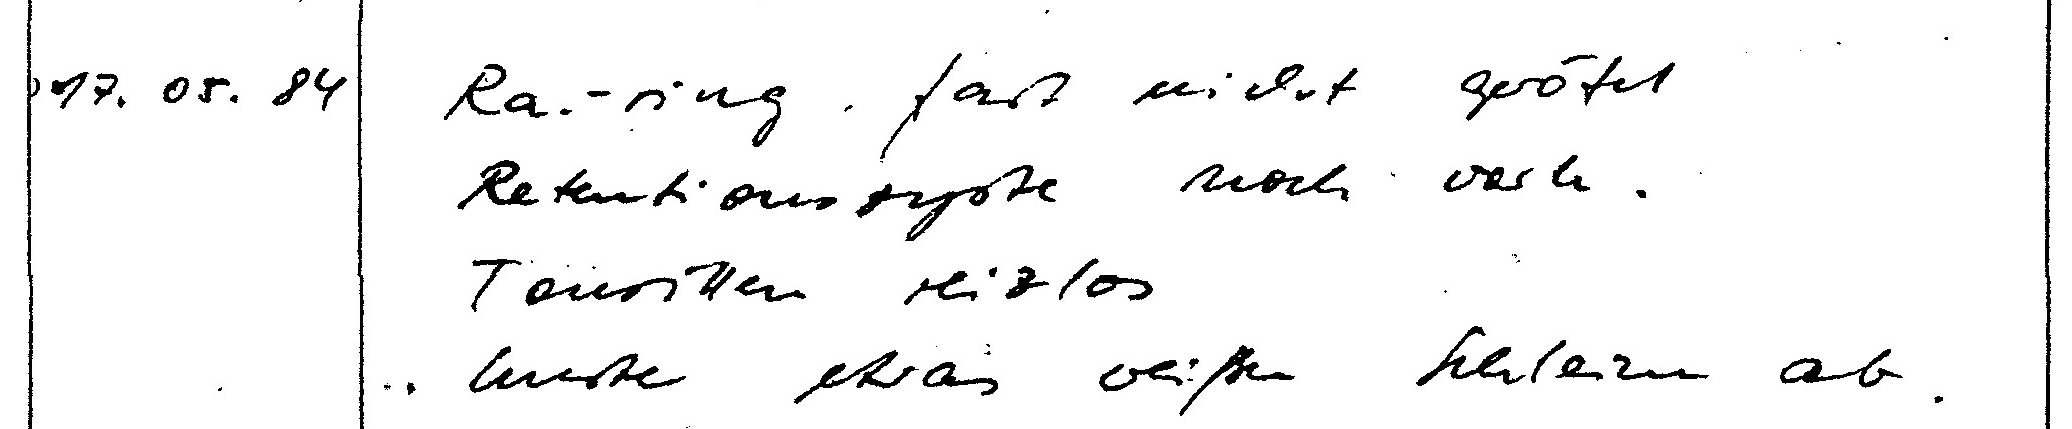 17. 05. 84 Ra.-ring. fast nicht gerötet
Retentionszyste noch vorh.
Tonsillen reizlos
huste etwas weißen Schleim ab.